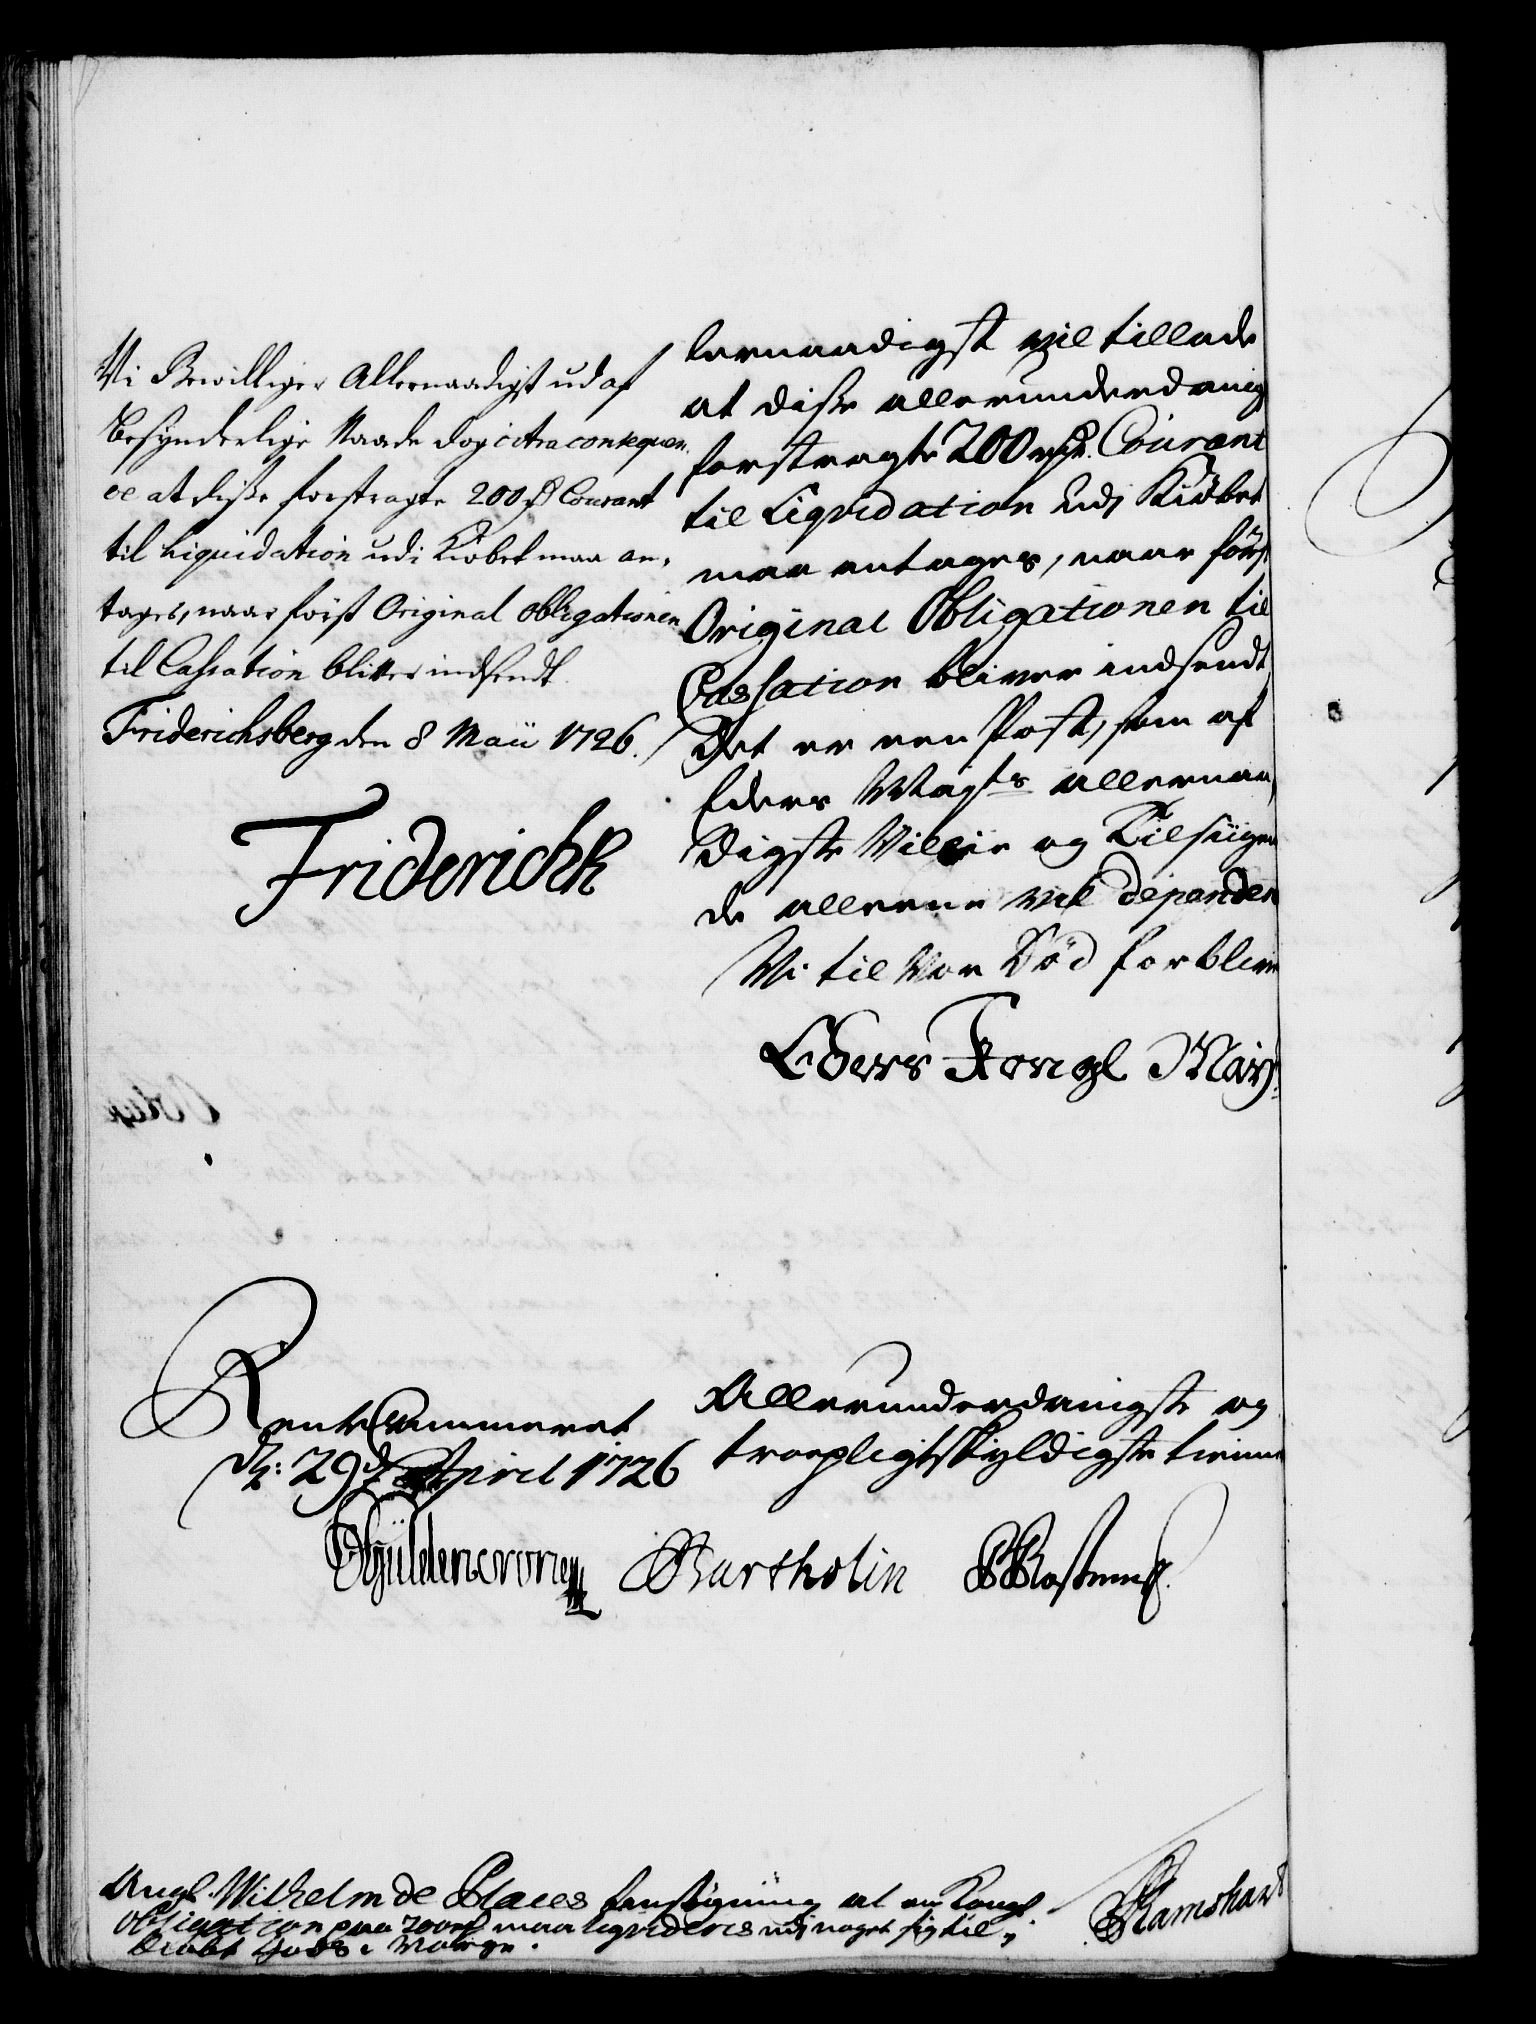 Vi Bewilliger Allernaadigst ud af
besynderlige Naade dog citra consequen
ce at disse forstragte 200 rd Courant
til Liquidation udi Kiøbet maa an,
tages, naar først Original Obligationen
til Cassation bliver indsendt.
Friderichsberg den 8 Maii 1726.
Friderich R
lernaadigst vil tillade
at disse allerunderdanig
forstragte 200 rdr. Courant
til Liqvidation udj Kiøbet
maa antages, naar først
Original Obligationen til
Cassation bliver indsendt,
Det er een Post, som af
Eders Mayts allernaa,
digste Villie og Tilsiigen
de alleene vil dependere
Vi til Vor Død forblive
Eders Kongl May:
RenteCammeret
d: 29de April 1726
Allerunderdanigste og
troepligtskyldigste tienere
Gyldencrone Bartholin
Ang: Wilhelm de Places ansøgning at en Kongl
Obligation paa 200 rd maa liqvideres udj noget sig til,
kiøbt Gods i Norge.
Ramshart